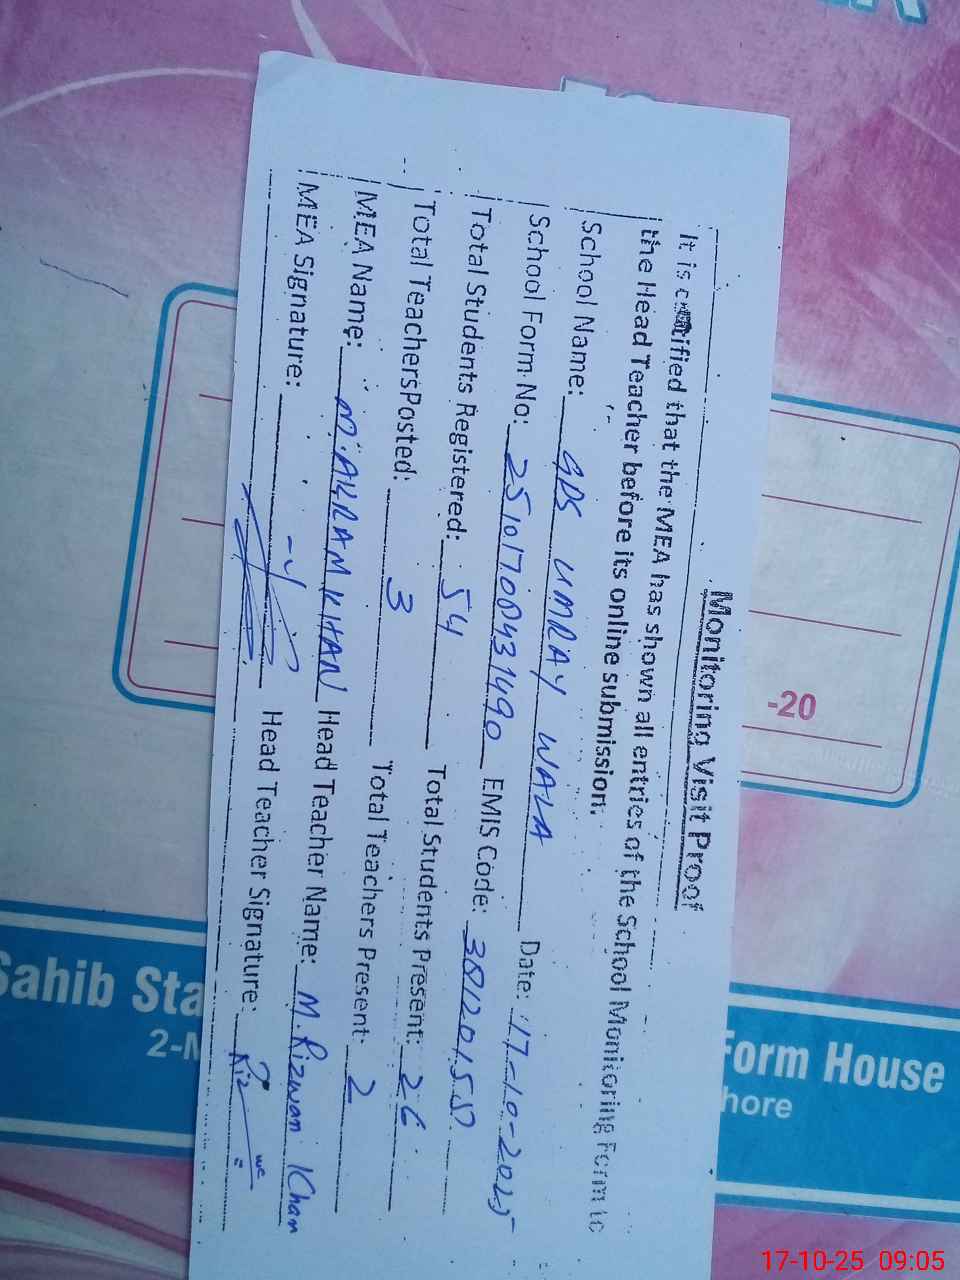 Monitoring Visit Proof
It is certified that the MEA has shown all entries of the School Monitoring Form to
the Head Teacher before its online submission.
School Name: GPS UMRAY WALA Date: 17-10-2025
School Form No: 25101708431490 EMIS Code:
Total Students Registered: 54 Total Students Present: 26
Total Teachers Posted: 3 Total Teachers Present: 2
MEA Name: M. AKRAM KHAN Head Teacher Name: M. Rizwan Khan
MEA Signature: Head Teacher Signature: Riz
-20
Sahib Sta
Form House
2-M
hore
17-10-25 09:05